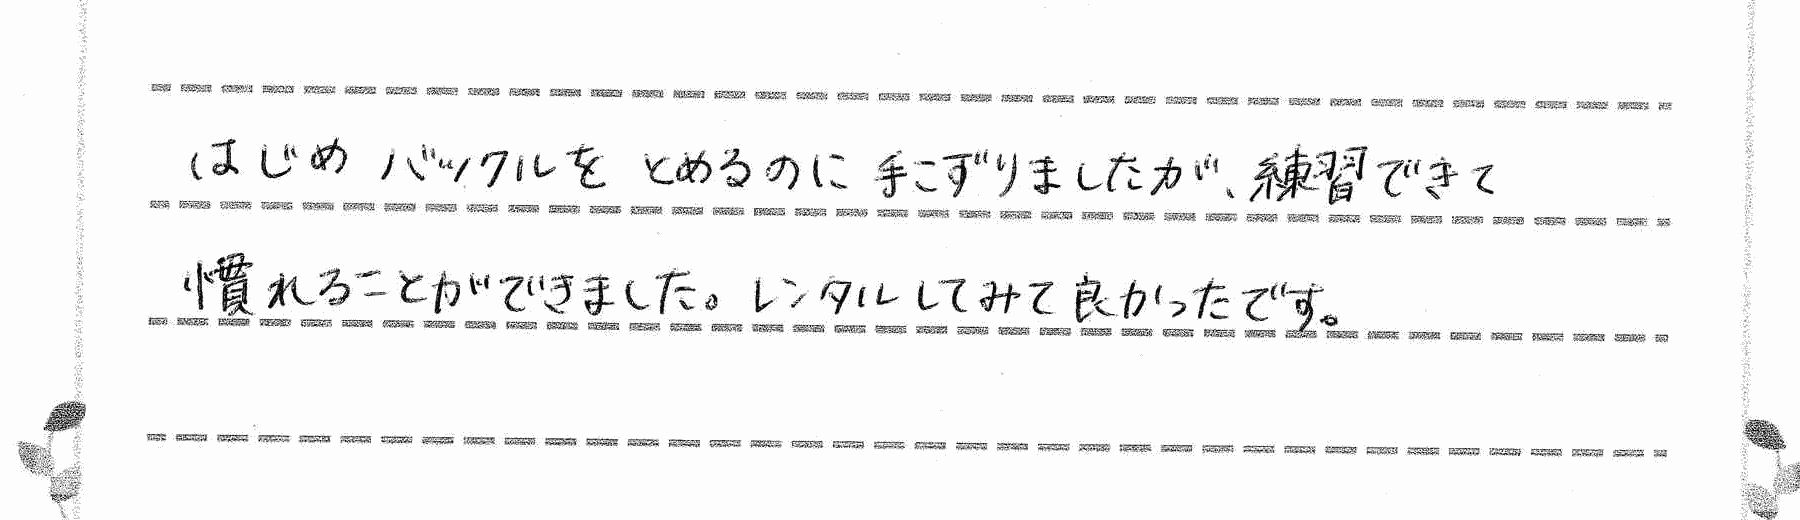 はじめ バックルを とめるのに 手こずりましたが、練習できて
慣れることができました。レンタルしてみて良かったです。